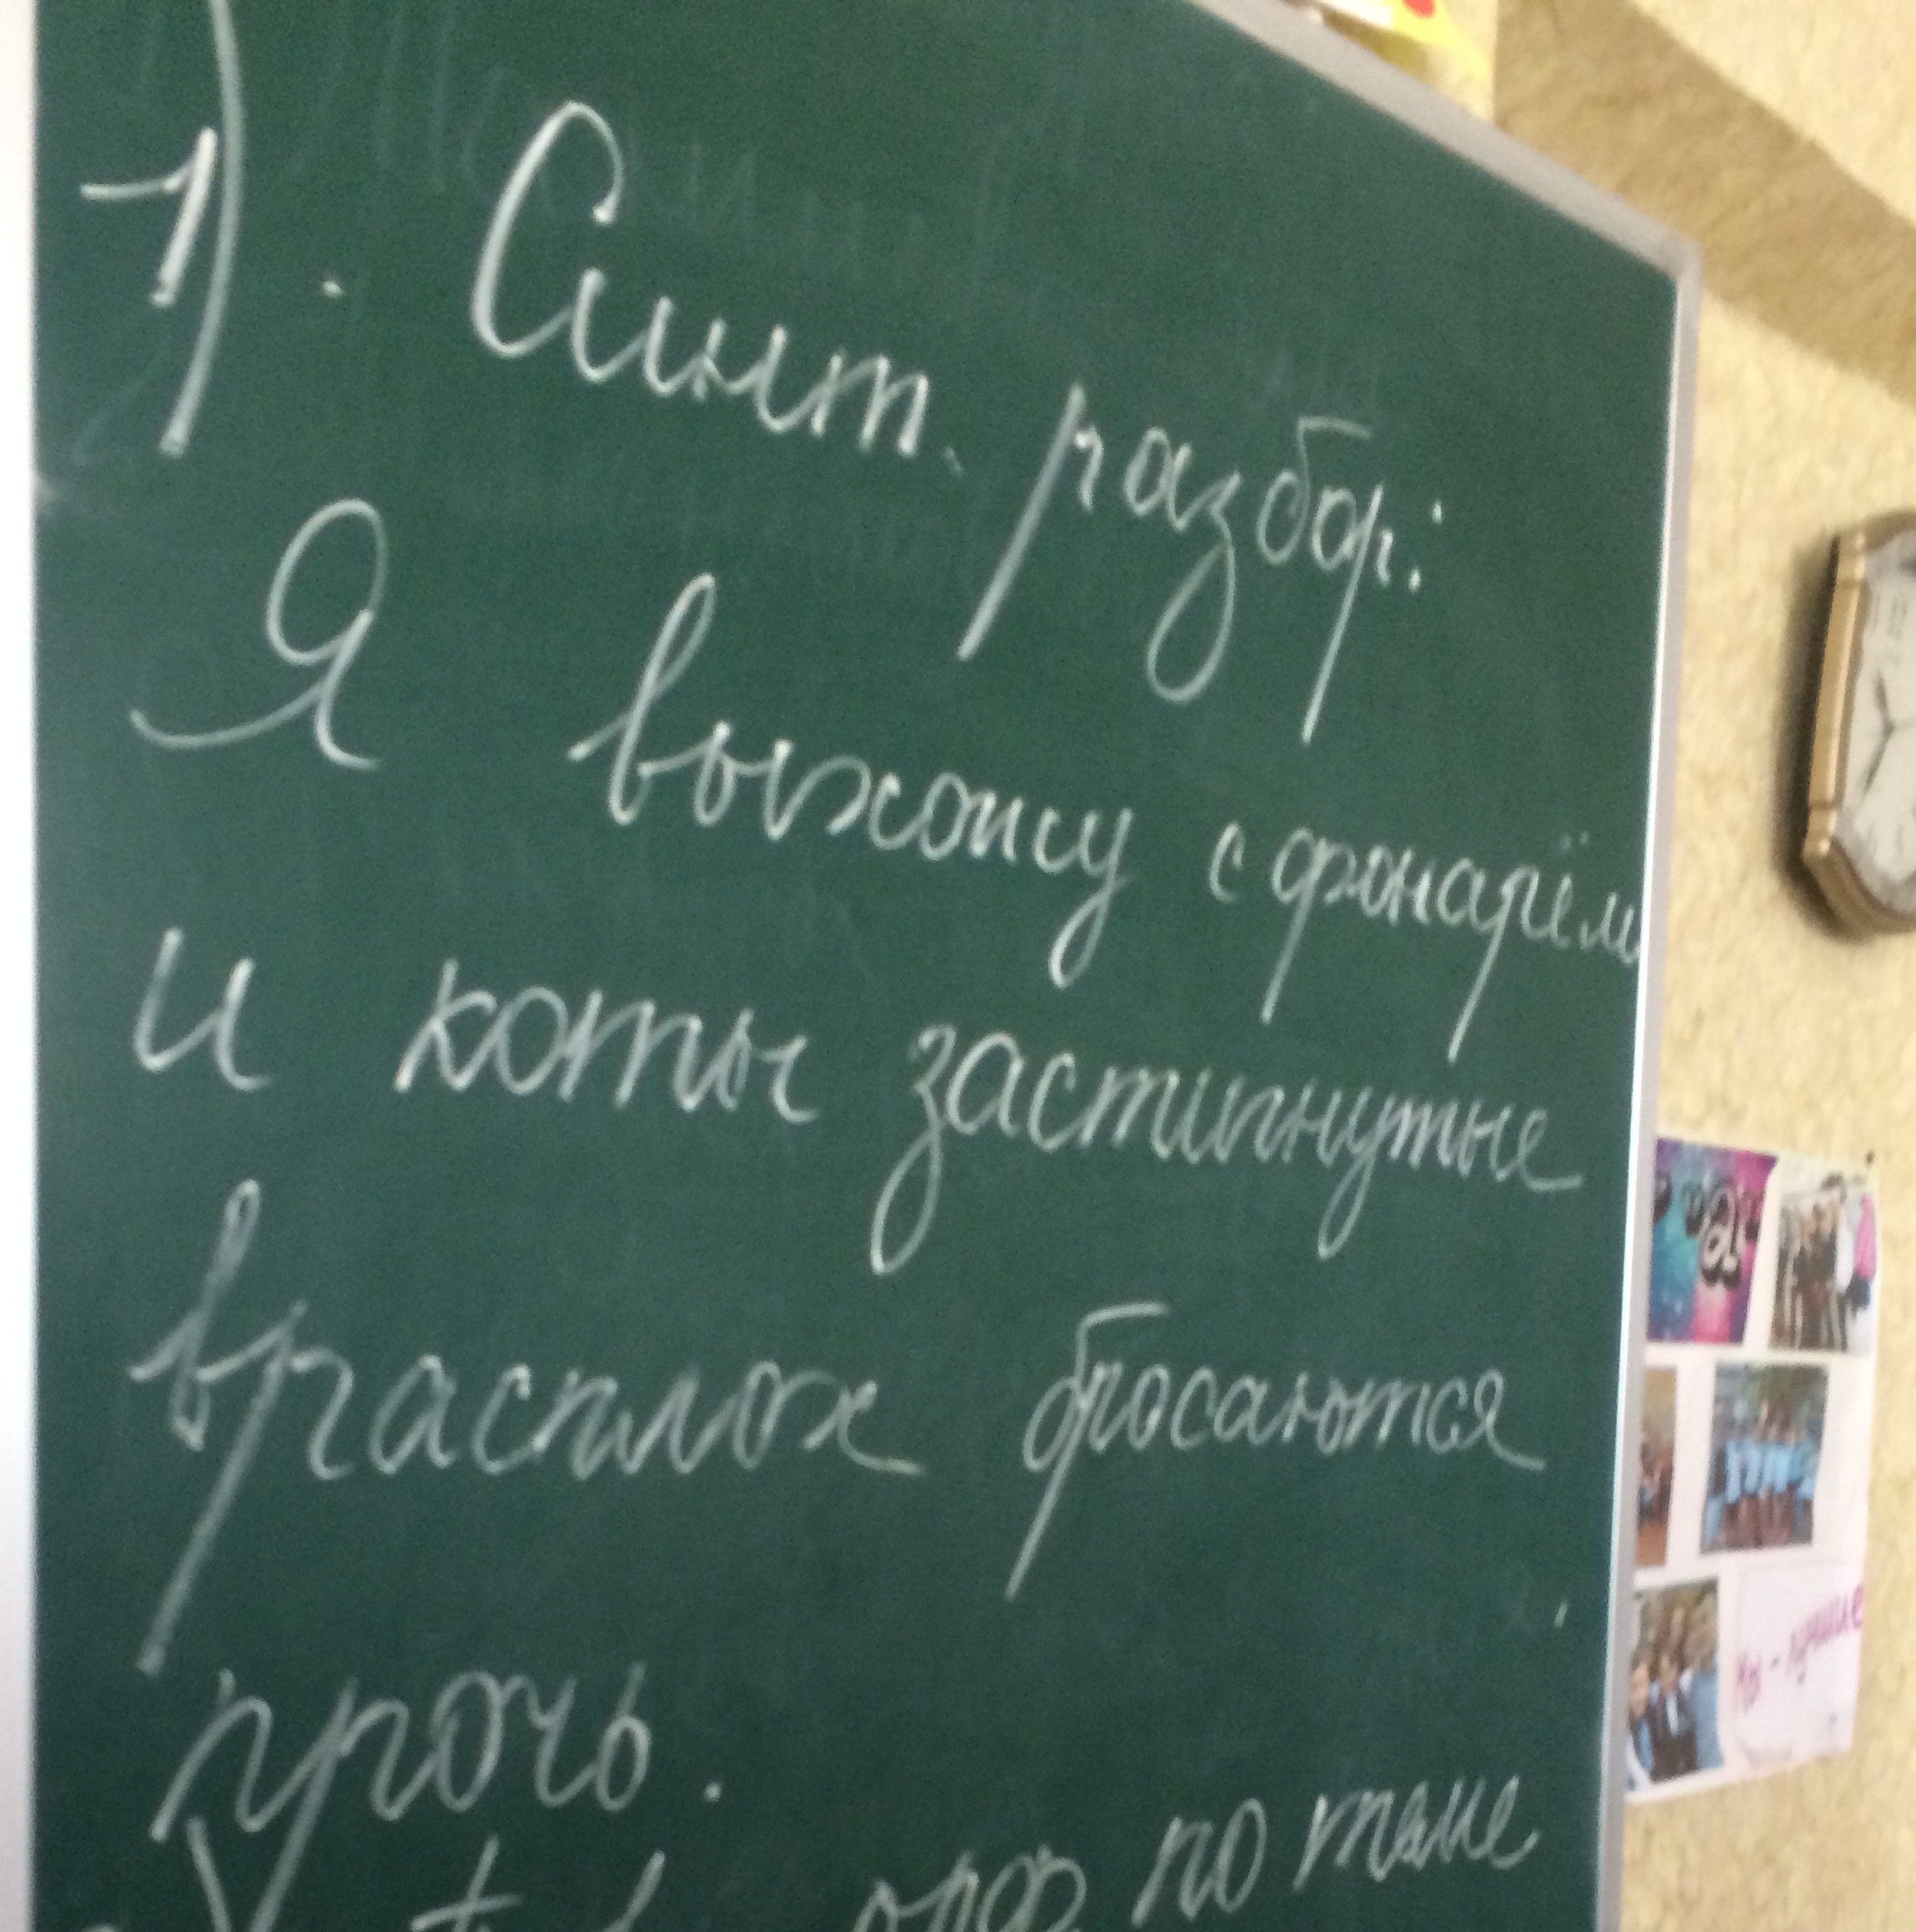 1). Синт. разбор:
Я выхожу с фонарём
и коты застигнутые
врасплох бросаются
прочь.
орф по теме
"а"
Мы - лучшие